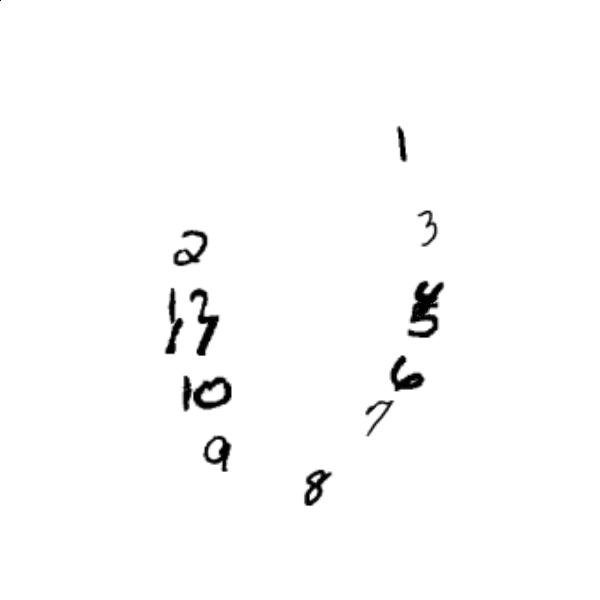 1
3
2
12 4
11 5
6
10
7
9
8